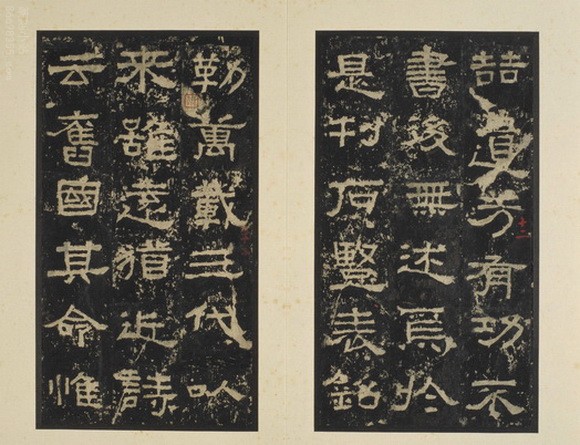 喆遺芳有功不
書後無述焉於
是刊石豎表銘
勒萬載三代以
來雖遠猶近詩
云舊國其命惟